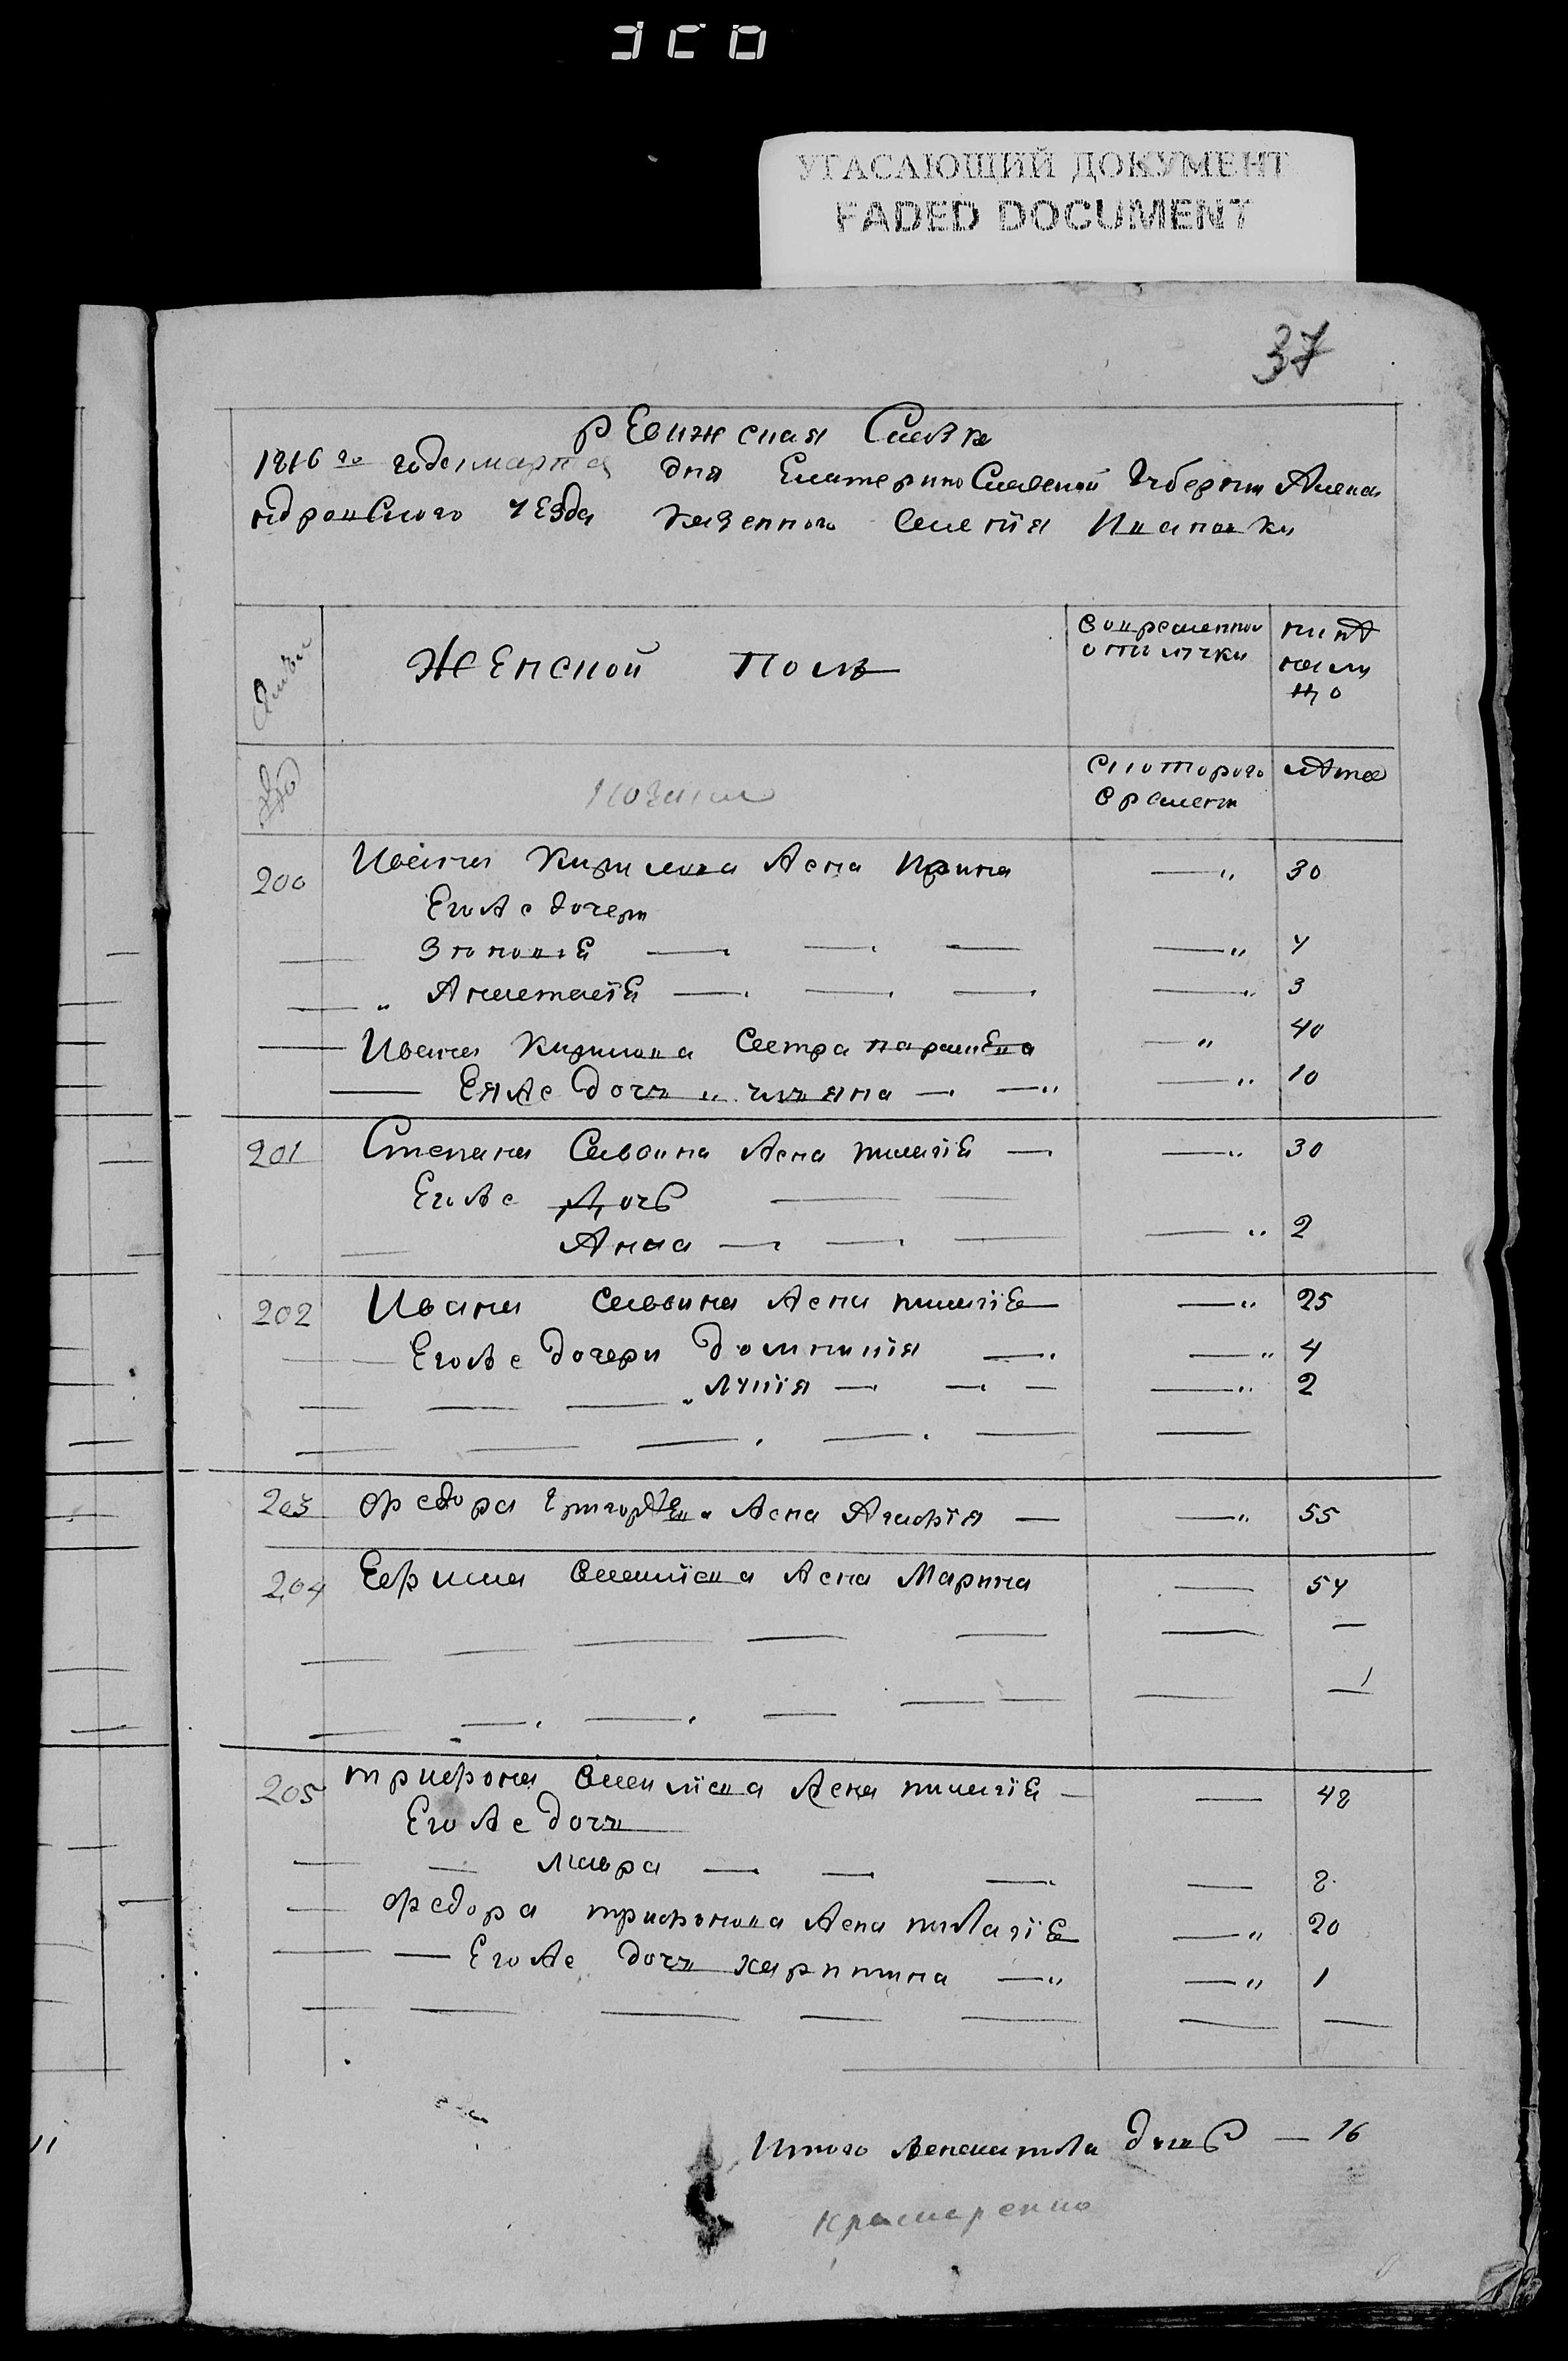 УГАСАЮЩИЙ ДОКУМЕНТ
FADED DOCUMENT
37
ревижская Сказка
1816го года марта дня Екатерино Славской Губернии Алекса
ндровского уезда казенного селенïя Ивановки
Женской полъ
вовременной отлучки
ныне налицо
Скоторого времени
лета
200 Ивана Кирилова жена Ирина —„ 30
Егоже дочери
Зеновïе — — — —„ 4
„ Анастасïе — — — —„ 3
— Ивана Кирилова Сестра парасъкева —„ 40
— Еяже дочь „ улияна — —„ —„ 10
201 Степана Саввина жена пилагïе — —„ 30
Егоже Дочь — —
Анна — — — —„ 2
202 Ивана саввина жена пилагïе —„ 25
Егоже дочери Домникïя — —„ 4
„ лукïя — — — —„ 2
203 федора григорïева жена Агафïя — —„ 55
204 Ефима Василïева жена Марина — 54
205 трифона василïева жена пилагïе — — 48
Егоже дочь
мавра — — — — 8
федора трифонова жена пилагïе —„ 20
— Егоже дочь харитина —„ —„ 1
Итого женска пола душъ — 16